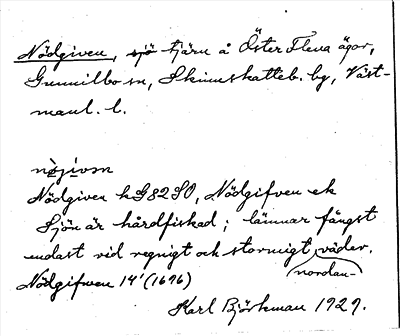 Nödgiven, sjö tjärn å Öster Flena ägor,
Gunnilbo sn, Skinnskatteb. bg, Väst-
manl. l.
nøjivsn
Nödgiven hG82SO, Nödgifven ek
Sjön är hårdfiskad; lämnar fångst
endast vid regnigt och stormigt väder.
nordan-
Nödgifwen 14' (1696)
Karl Björkman 1929.